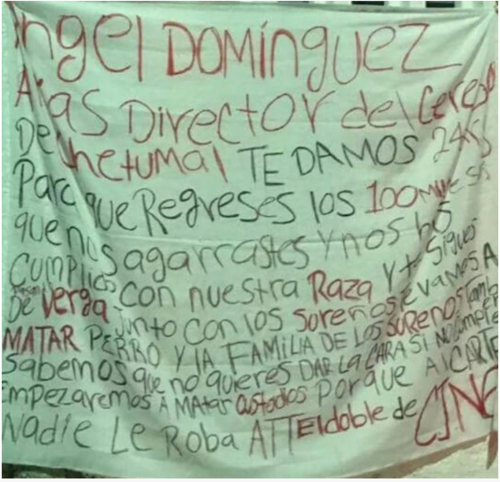 Angel DOMÍnguez
Arias DIRECTOR del Cereso
De Chetumal TE DAMOS 24
ParcqueRegreses los 100
que nos agarrastes y nos
CUMPLiCS con nuestra Raza Y te Sigues
De Verga Junto con los Sureños e vamos A
MATAR PERRO Y lA FAMILIA DE LOS SUREÑOS
Sabemos que no quieres DAR lA CARA Si NO
EMPEZAREMOS A MAtar Custodios PorQue Al CARTE
Nadie Le Roba ATTEldoble de CJNG